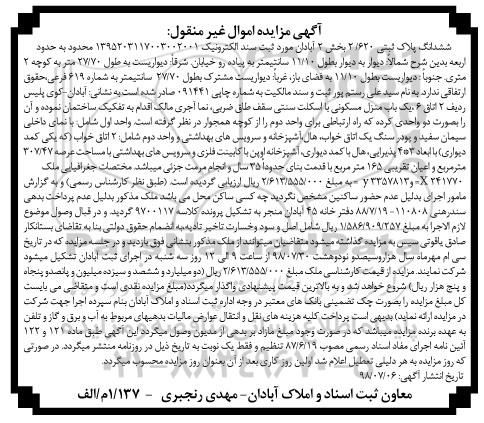 آگهی مزایده اموال غیر منقول:
ششدانگ پلاک ثبتی ۲/۶۲۰ بخش ۲ آبادان مورد ثبت سند الکترونیک ۱۳۹۵۲۰۳۱۱۷۰۰۳۰۰۲۰۰۱ محدود به حدود
اربعه بدین شرح شمالا: دیوار به دیوار بطول ۱۱/۱۰ سانتیمتر به پیاده رو خیابان. شرقا: دیواریست به طول ۲۷/۷۰ متر به کوچه ۲
متری. جنوبا: دیواریست بطول ۱۱/۱۰ به فضای باز، غربا: دیواریست مشترک بطول ۲۷/۷۰ سانتیمتر به شماره ۶۱۹ فرعی، حقوق
ارتفاقی ندارد به نام سید علی رستم پور ثبت و سند مالکیت به شماره چاپی ۰۹۱۴۴۱ صادر شده است.به نشانی: آبادان-کوی پلیس
ردیف ۲ اتاق ۶ .یک باب منزل مسکونی با اسکلت سنتی سقف طاق ضربی، نما آجری مالک اقدام به تفکیک ساختمان نموده و آن
را بصورت دو واحدی کرده که راه ارتباطی برای واحد دوم را از کوچه همجوار در نظر گرفته است. واحد اول شامل: با نمای داخلی
سیمان سفید و پودر سنگ یک اتاق خواب، هال، آشپزخانه و سرویس های بهداشتی و واحد دوم شامل: ۲ اتاق خواب (که یکی کمد
دیواری) با ابعاد ۳*۴ پذیرایی، هال با کمد دیواری، آشپزخانه اوپن با کابینت فلزی و سرویس های بهداشتی با مساحت عرصه ۳۰۷/۴۷
مترمربع و اعیان تقریبی ۱۶۵ متر مربع با قدمت بنای حدودا ۳۵ سال و انجام مرمت جزئی میباشد. مختصات جغرافیایی ملک
۲۴۱۷۷۰ X= و ۳۳۵۷۸۱۳ y= به مبلغ ۲/۶۱۳/۵۵۵/۰۰۰ ریال ارزیابی گردیده است. (طبق نظر کارشناس رسمی) و به گزارش
مامور اجرای بدلیل عدم حضور ساکنین مشخص نگردید چه کسی ساکن محل می باشد ملک مذکور بدلیل عدم پرداخت بدهی
سندرهنی ۱۱۰۸۰۸- ۸۸/۷/۱۹ دفتر خانه ۴۵ آبادان منجر به تشکیل پرونده کلاسه ۹۷۰۰۱۱۷ گردید. و در قبال وصول موضوع
لازم الاجرا به مبلغ ۱/۵۸۶/۹۰۹/۲۵۷ ریال شامل اصل و سود وخسارت تاخیر تأدیه به انضمام حقوق دولتی بنا به تقاضای بستانکار
صادق یاقوتی سپس به مزایده گذاشته میشود متقاضیان میتوانند از ملک مذکور بنشانی فوق بازدید و در جلسه مزایده که در تاریخ
سی ام مهرماه سال هزاروسیصدو نودوهشت ۹۸/۰۷/۳۰ از ساعت ۹ الی ۱۲ روز سه شنبه در اجرای ثبت آبادان تشکیل میشود
شرکت نمایند. مزایده از قیمت کارشناسی ملک مبلغ ۲/۶۱۳/۵۵۵/۰۰۰ ریال (دو میلیارد و ششصد و سیزده میلیون و پانصدو پنجاه
و پنج هزار ریال) شروع خواهد شد و به بالاترین قیمت پیشنهادی واگذار میگردد(مبلغ مزایده نقدی است و متقاضی می بایست
کل مبلغ مزایده را بصورت چک تضمینی بانک های معتبر در وجه اداره ثبت اسناد و املاک آبادان بنام سپرده اجرا جهت شرکت
در مزایده ارئه نماید) بدیهی است پرداخت کلیه هزینه های نقل و انتقال عوارض مالیات بدهیهای مربوط به آب و برق و گاز و تلفن
به عهده برنده مزایده میباشد که در صورت وجود مبلغ مازاد بر بدهی از مدیون وصول میگردد این آگهی طبق ماده ۱۲۱ و ۱۲۲
آئین نامه اجرای مفاد اسناد رسمی مصوب ۸۷/۶/۱۹ تنظیم و فقط یک نوبت به تاریخ ذیل در روزنامه منتشر میگردد. در صورتی
که روز مزایده به هر دلیلی تعطیل اعلام شد اولین روز کاری بعد از آن بعنوان روز مزایده محسوب میگردد.
تاریخ انتشار آگهی: ۹۸/۰۷/۰۶
معاون ثبت اسناد و املاک آبادان- مهدی رنجبری - ۱/۱۳۷م/الف